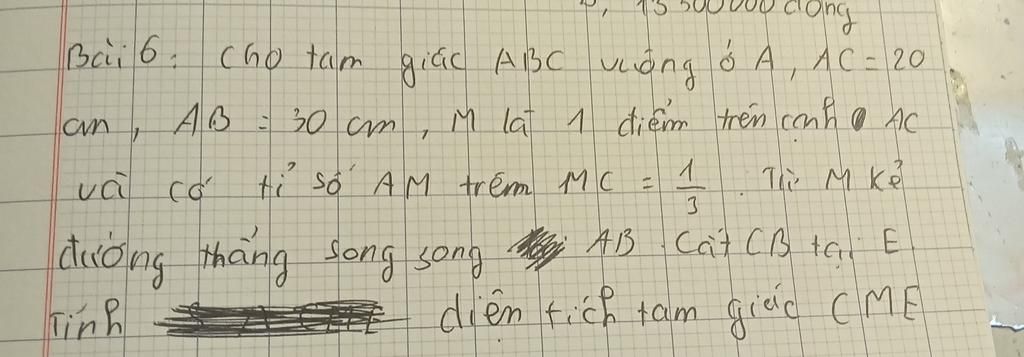 13 500 000 đồng
Bài 6: Cho tam giác ABC vuông ở A, AC = 20
cm, AB = 30 cm, M là 1 điểm trên cạnh AC
và có tỉ số AM trêm MC = 1/3. Từ M kẻ
đường thẳng song song AB cắt CB tại E
Tính diện tích tam giác CME